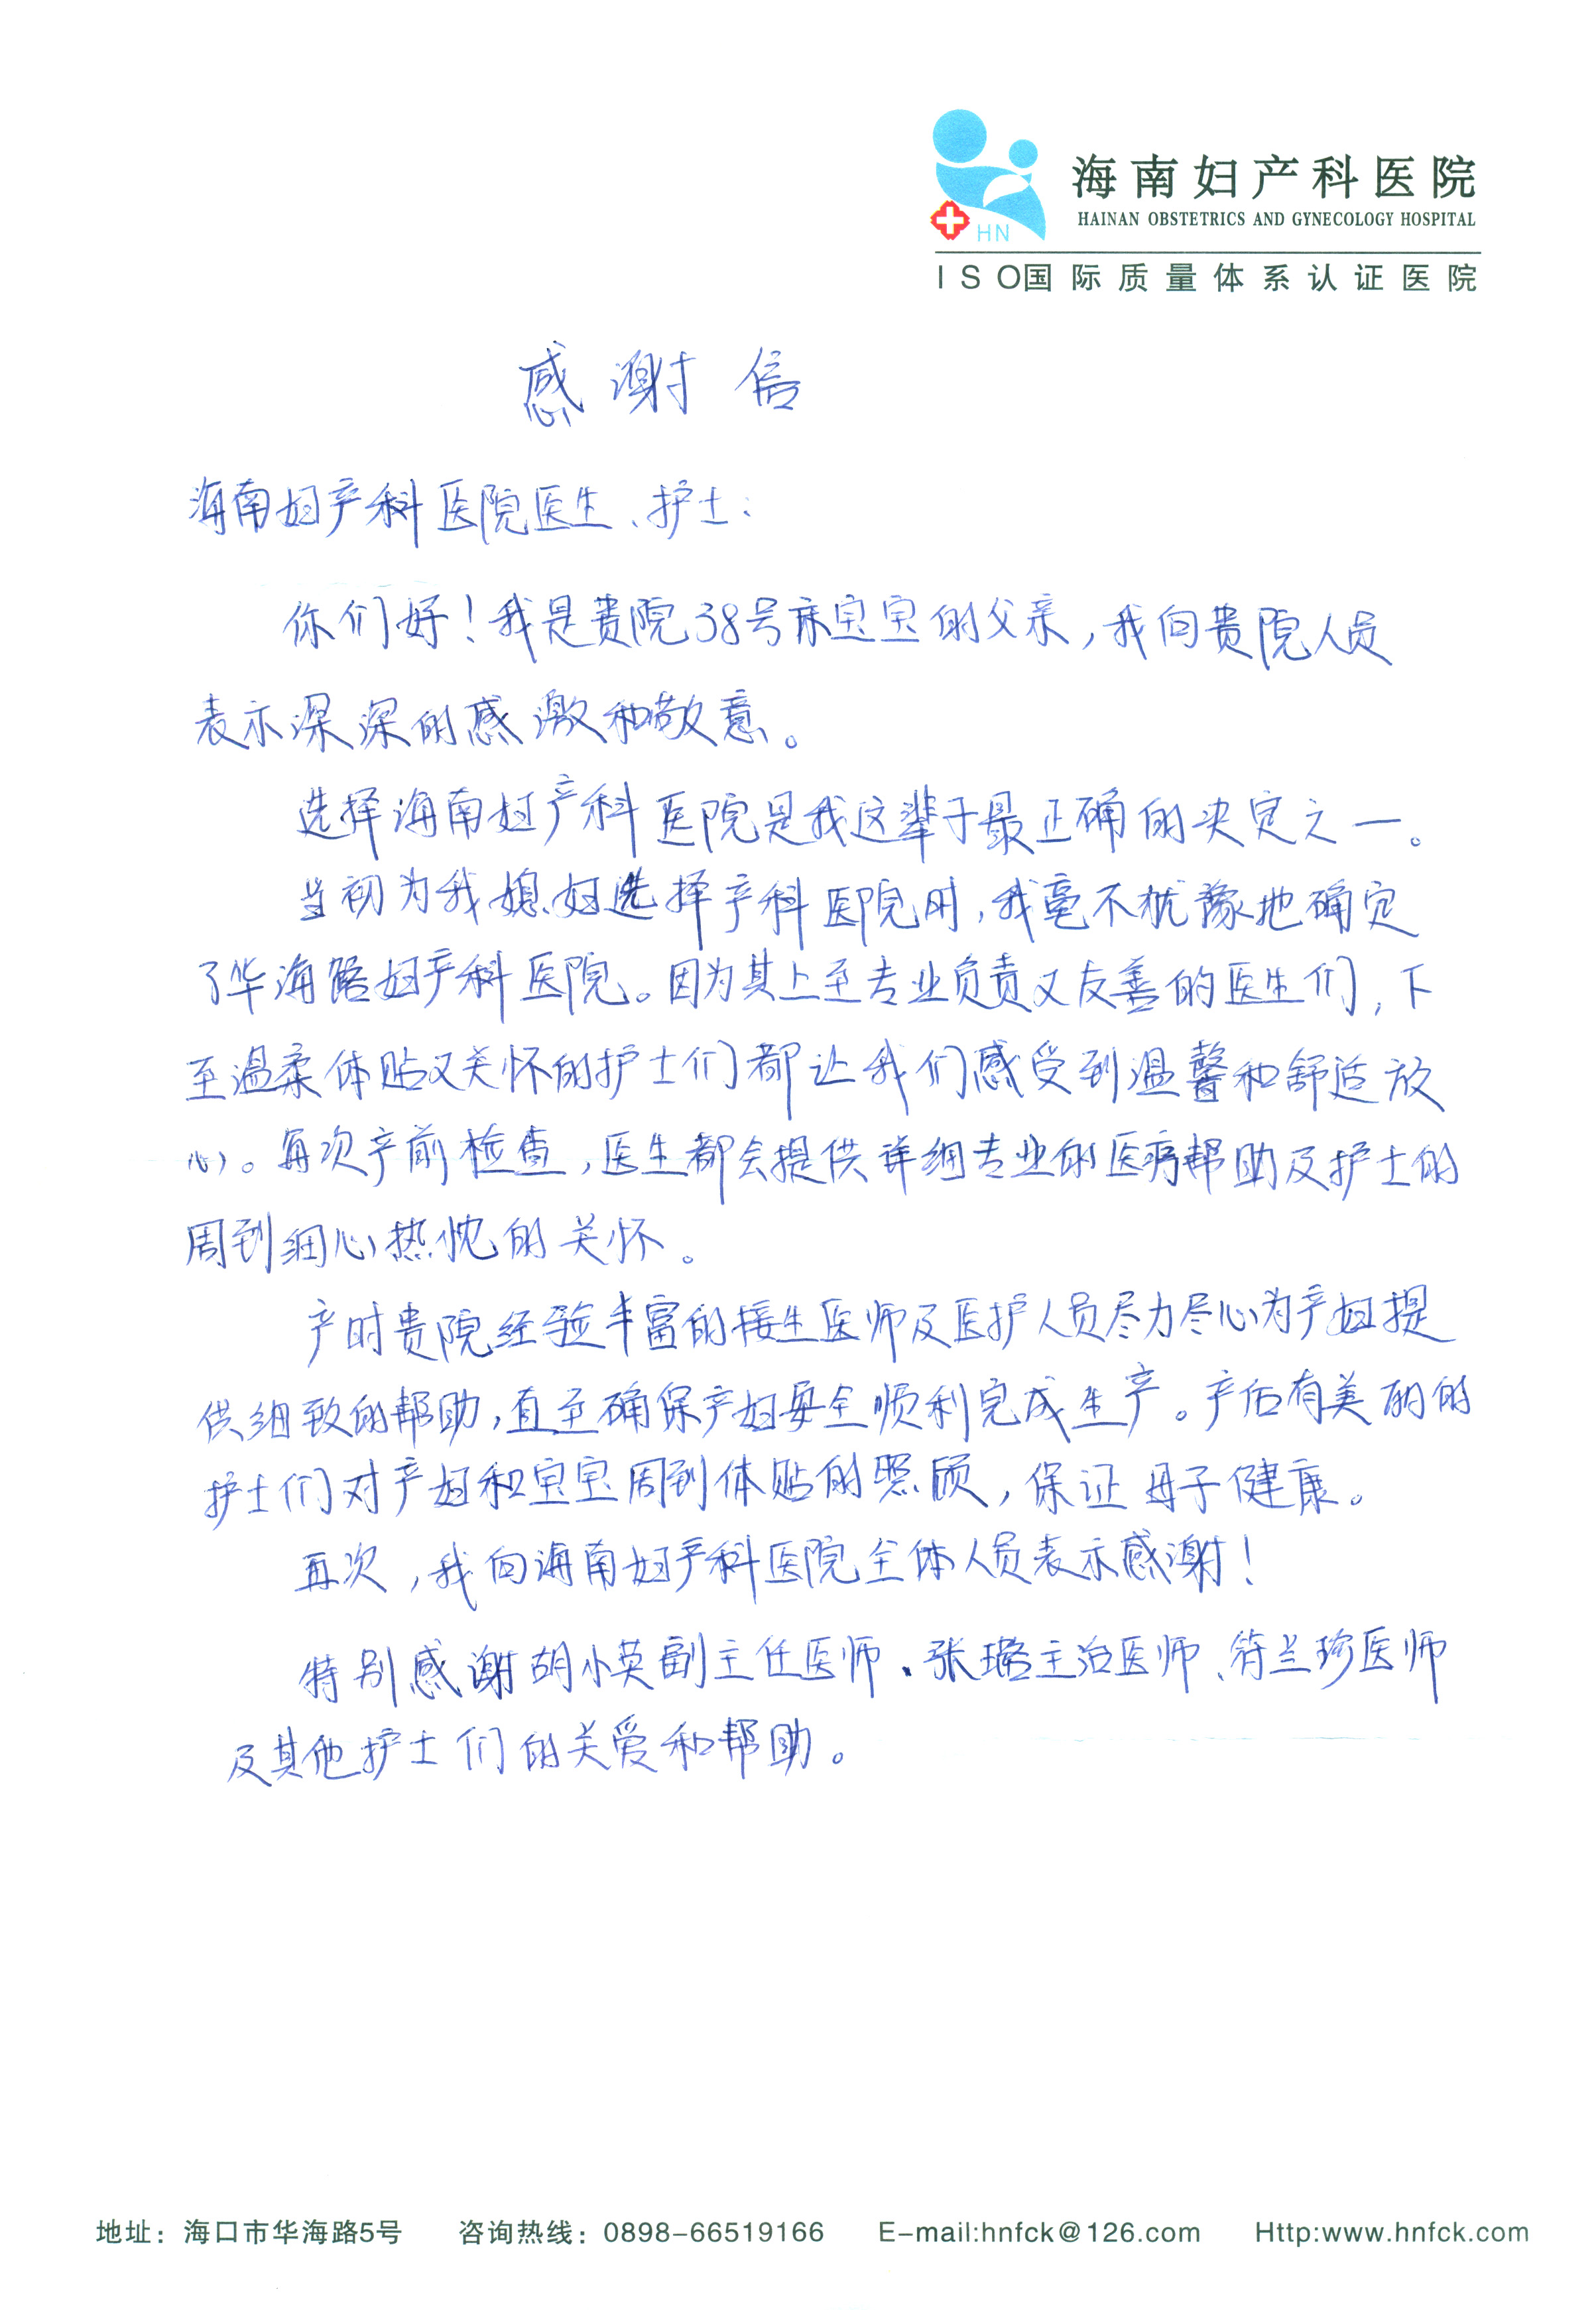 海南妇产科医院
HAINAN OBSTETRICS AND GYNECOLOGY HOSPITAL
HN
ISO国际质量体系认证医院
感谢信
海南妇产科医院医生、护士：
你们好！我是贵院38号床宝宝的父亲，我向贵院人员
表示深深的感激和敬意。
选择海南妇产科医院是我这辈子最正确的决定之一。
当初为我媳妇选择产科医院时，我毫不犹豫地确定
了华海路妇产科医院。因为其上至专业负责又友善的医生们，下
至温柔体贴又关怀的护士们都让我们感受到温馨和舒适放
心。每次产前检查，医生都会提供详细专业的医疗帮助及护士的
周到细心热忱的关怀。
产时贵院经验丰富的接生医师及医护人员尽力尽心为产妇提
供细致的帮助，直至确保产妇安全顺利完成生产。产后有美丽的
护士们对产妇和宝宝周到体贴的照顾，保证母子健康。
再次，我向海南妇产科医院全体人员表示感谢！
特别感谢胡小英副主任医师、张璐主治医师、符兰珍医师
及其他护士们的关爱和帮助。
地址：海口市华海路5号 咨询热线：0898-66519166 E-mail:hnfck@126.com Http:www.hnfck.com